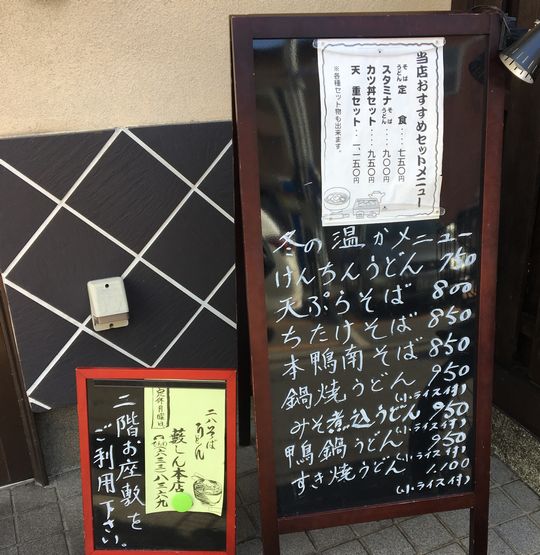 当店おすすめセットメニュー
そば
うどん 定食‥‥七五〇円
スタミナ そば
うどん ‥‥九〇〇円
カツ丼セット‥‥九五〇円
天重セット‥‥一、一五〇円
※各種セット物も出来ます。
冬の温かメニュー
けんちんうどん 750
天ぷらそば 800
ちたけそば 850
本鴨南そば 850
鍋焼うどん 950
(小ライス付)
みそ煮込うどん 950
鴨鍋うどん 950
すき焼うどん 1.100
(小ライス付)
二階お座敷を
ご利用下さい。
二八そば
うどん
藪しん本店
定休月曜日